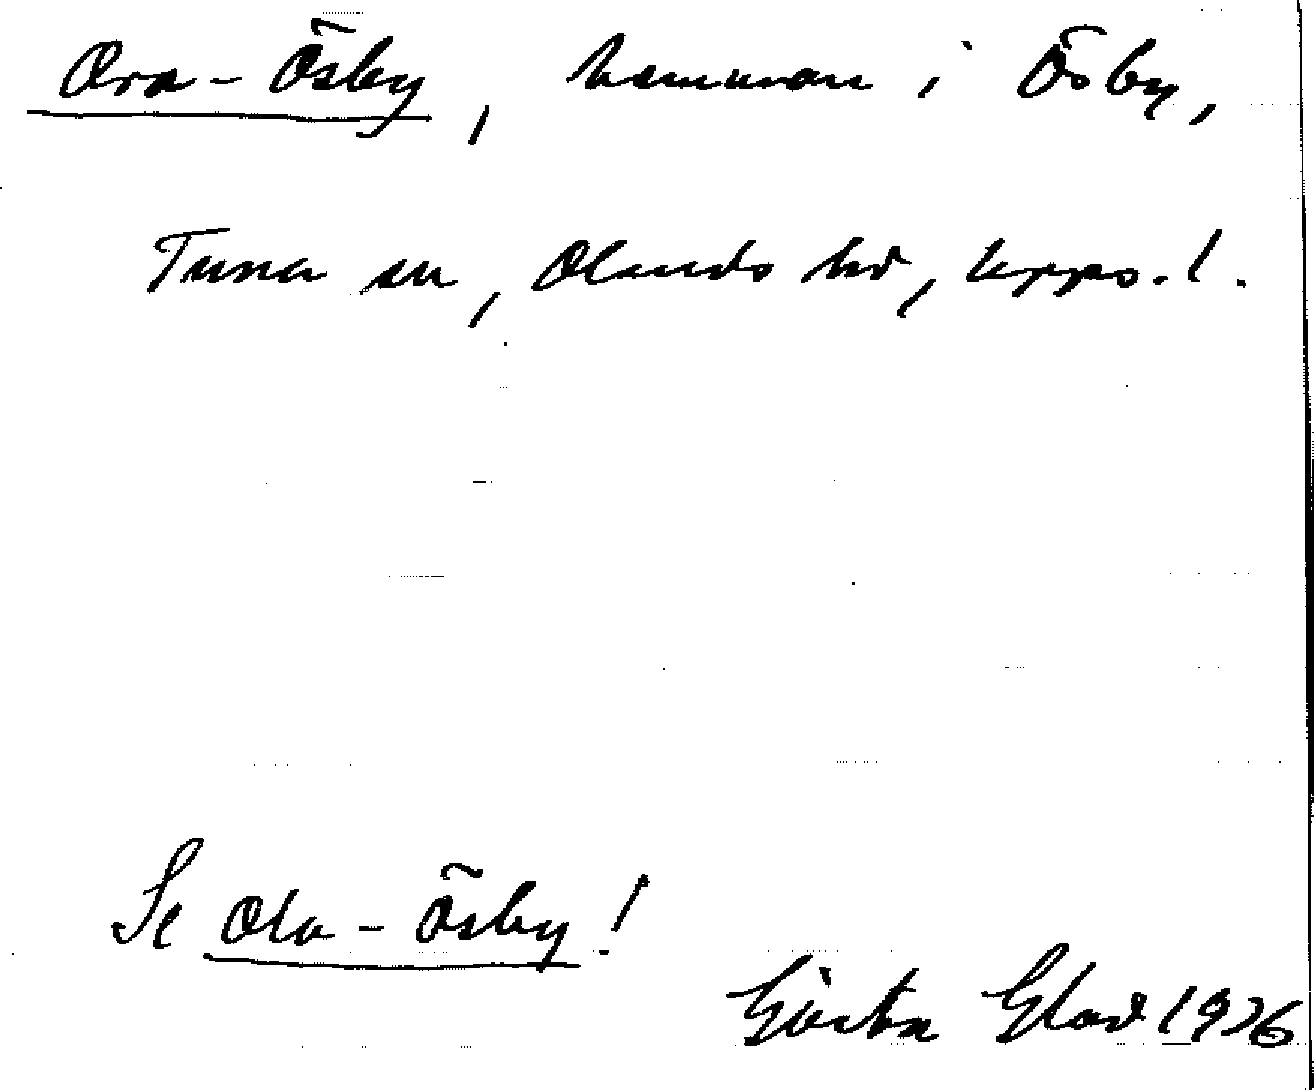 Ora-Ösby, hemman i Ösby,
Tuna sn, Olands hd, Upps. l.
Se Ola-Ösby!
Gösta Glad 1926